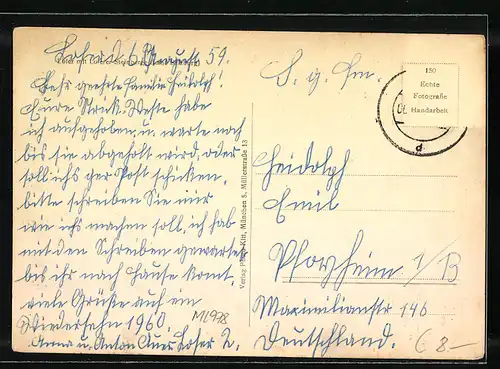 Lofer d. 6. August 59.
Sehr geehrte Familie Heidolph!
Eure Strick-Weste habe
ich aufgehoben, u. warte noch
bis sie abgeholt wird, oder
soll ichs per Post schicken,
bitte schreiben Sie mir
wie ichs machen soll, ich hab
mit den Schreiben gewartet
bis ihr nach Hause komt,
viele Grüße auf ein
Wiedersehn 1960
Anna u. Anton Auer Lofer 2.
ML978
Verlag Photo-Kitt, München 5, Müllerstraße 13
150
Echte
Fotografie
Handarbeit
d
Heidolph
Emil
Pforzheim 1/B
Maximilianstr 146
Deutschland.
8-